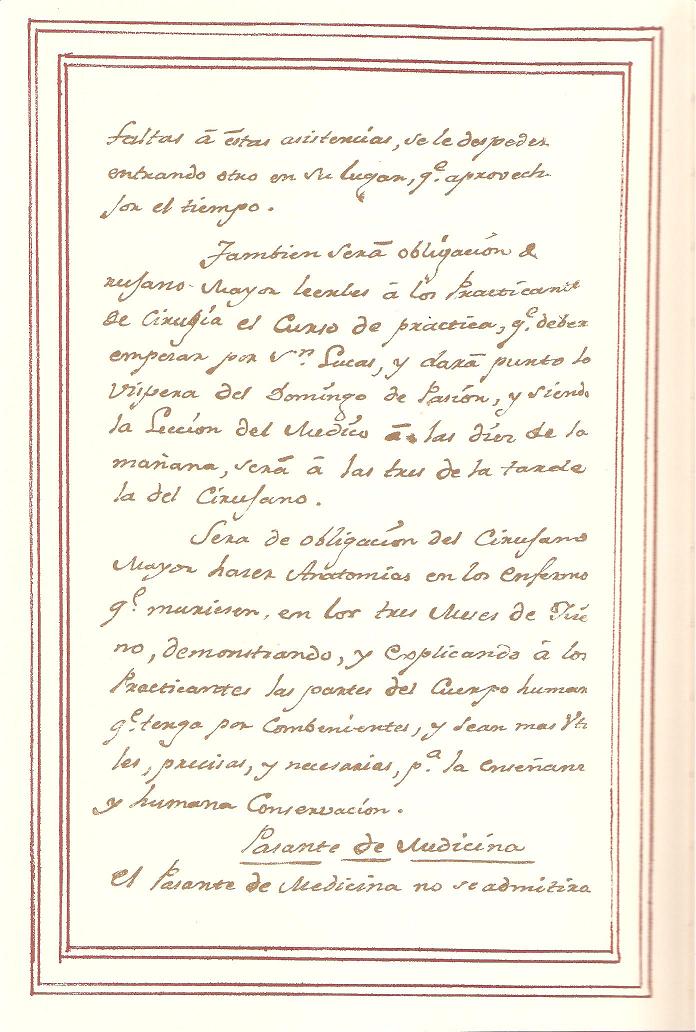 faltas á éstas asistencias, se le despeder
entrando otro en su lugar, q.e aprovech
jor el tiempo.
Tambien será obligación d
rujano Mayor leerles á los Practicant
de Cirugía el Curso de práctica, q.e deber
empezar por Sn. Lucas, y dará punto la
Víspera del Domingo de Pasión, y siendo
la Lección del Medico á las diez de la
mañana, será á las tres de la tarde
la del Cirujano.
Sera de obligación del Cirujano
Mayor hazer Anatomias en los enfermo
q.e muriesen, en los tres Meses de Ybie
no, demonstrando, y explicando á los
Practicantes las partes del Cuerpo human
q.e tenga por Combenientes, y sean mas Vti
les, precisas, y necesarias, p.a la enseñanz
y humana Conservación.
Pasante de Medicina
El Pasante de Medicina no se admitira